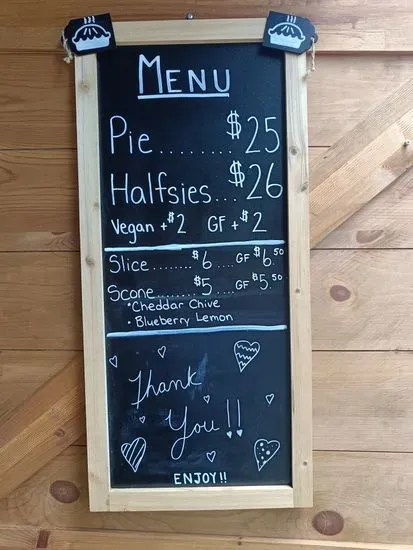 MENU
Pie........ $25
Halfsies... $26
Vegan +$2 GF +$2
Slice ........$6.... GF $6.50
Scone.......$5.... GF $5.50
*Cheddar Chive
• Blueberry Lemon
Thank
You!!
ENJOY!!